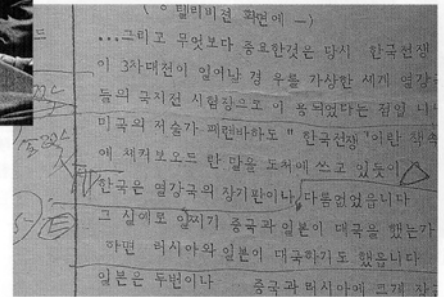 ( ㅇ 텔리비전 화면에 —)
...그리고 무엇보다 중요한것은 당시 한국전쟁
이 3차대전이 일어날 경우를 가상한 세계 열강
들의 국지전 시험장으로 이용되었다는 점입니
미국의 저술가 페렌바하도 " 한국전쟁 "이란 책속
에 체커보오드 란 말을 도처에 쓰고 있듯이
한국은 열강국의 장기판이나 다름없었읍니다
그 실예로 일찌기 중국과 일본이 대국을 했는가
하면 러시아와 일본이 대국하기도 했읍니다
일본은 두번이나 중국과 러시아에 크게